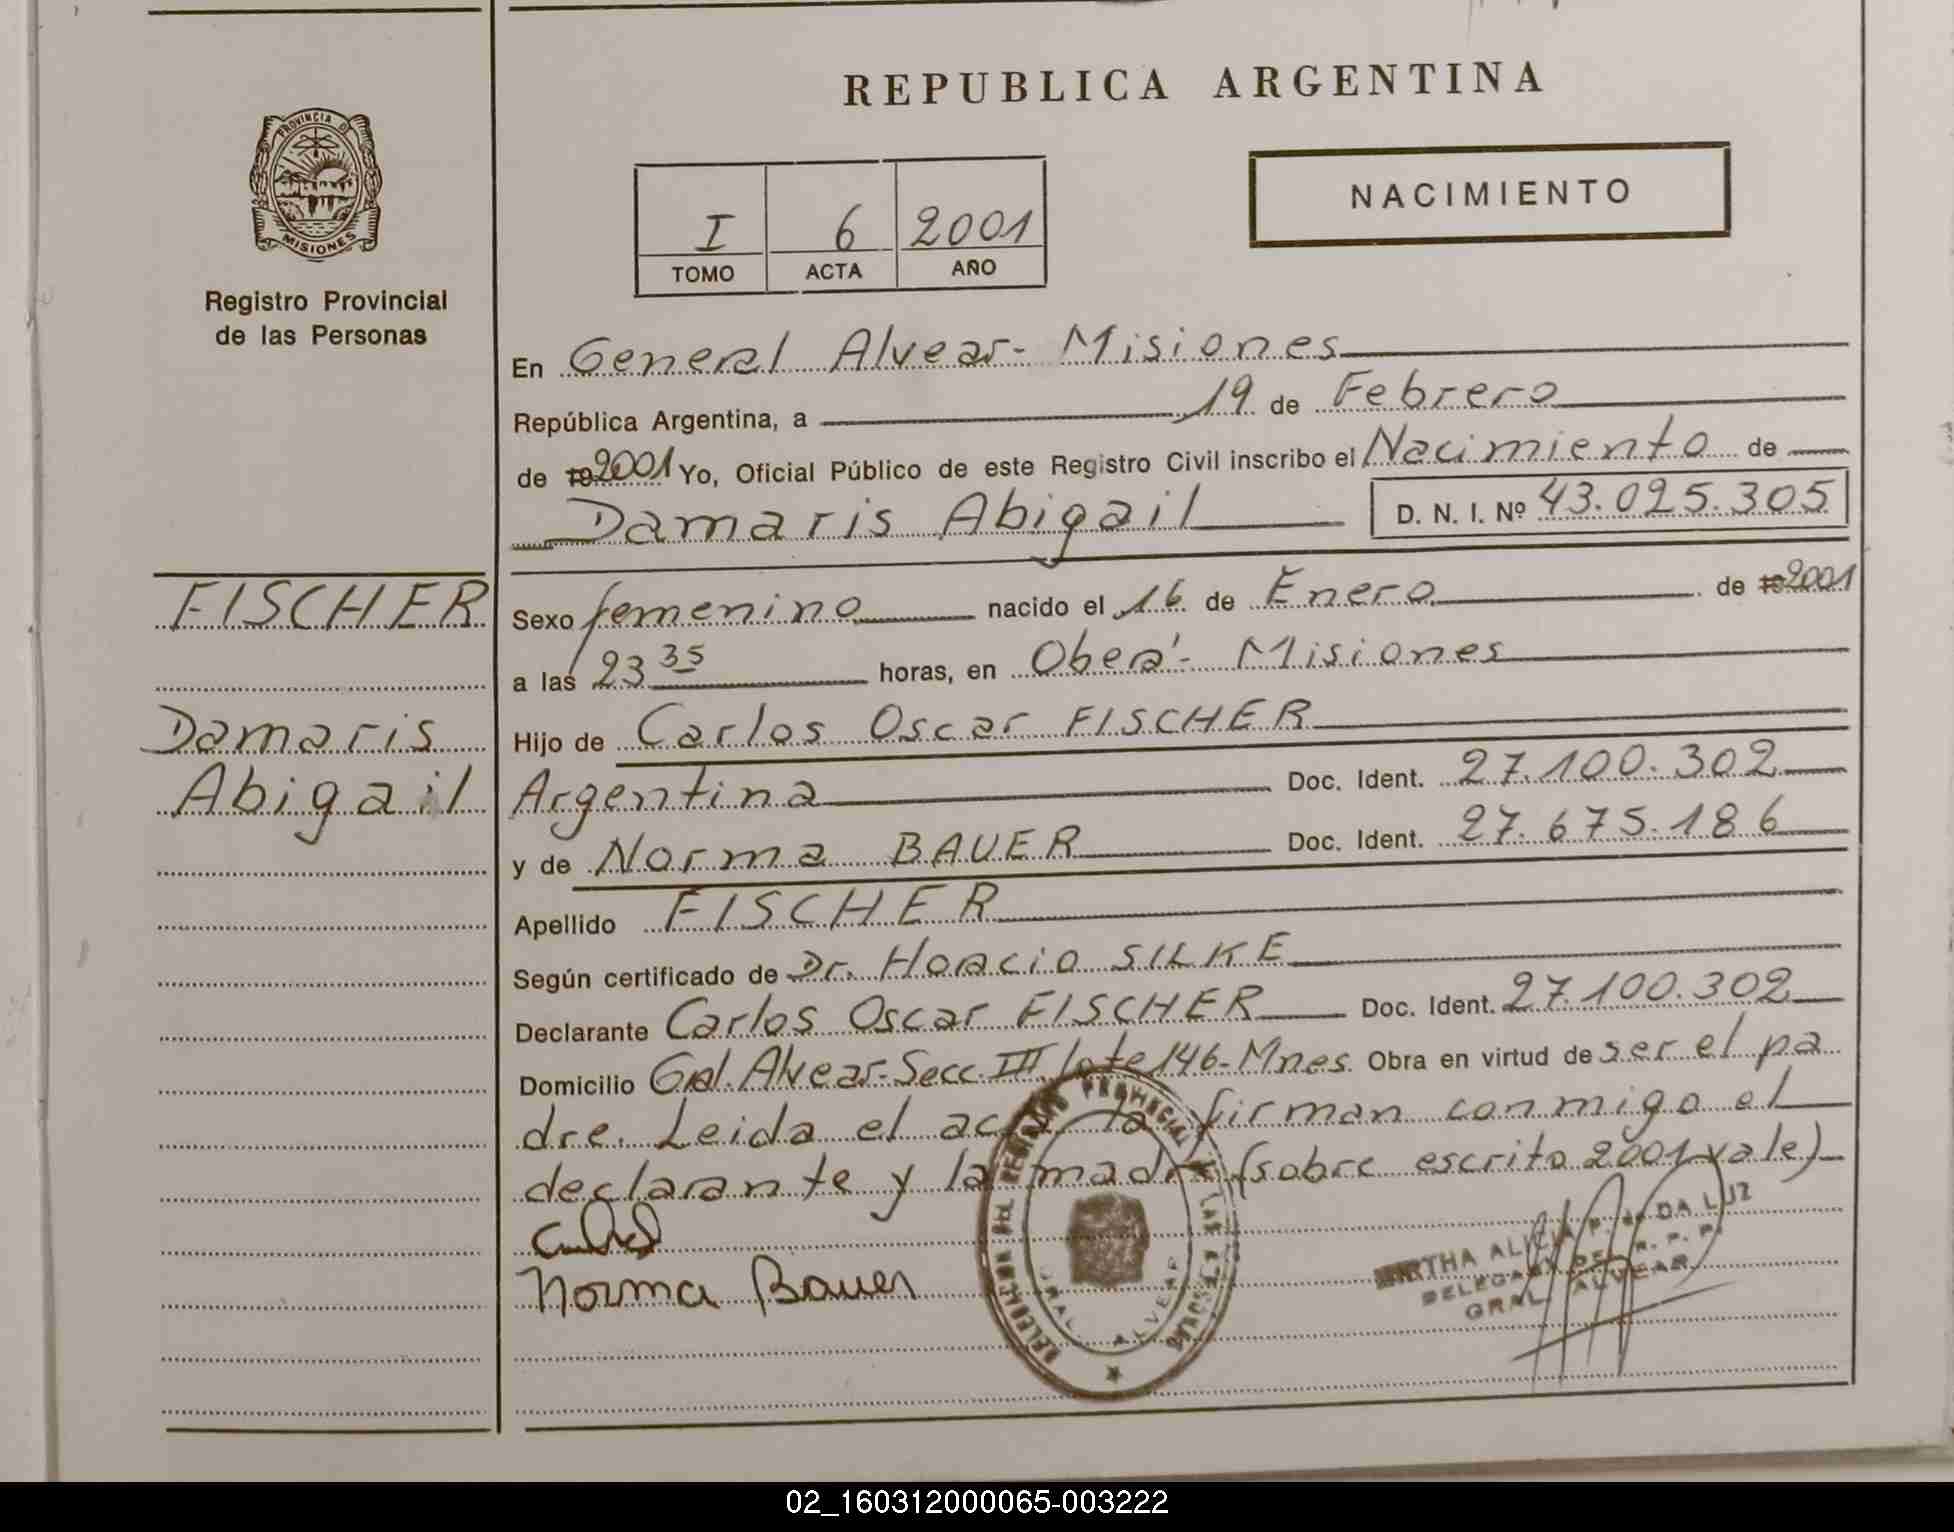 REPUBLICA ARGENTINA
PROVINCIA DE
MISIONES
Registro Provincial
de las Personas
NACIMIENTO
I 6 2001
TOMO ACTA AÑO
En General Alvear - Misiones
República Argentina, a 19 de Febrero
de 19 2001 Yo, Oficial Público de este Registro Civil inscribo el Nacimiento de
Damaris Abigail D. N. I. Nº 43.025.305
FISCHER
Damaris
Abigail
Sexo femenino nacido el 16 de Enero de 19 2001
a las 23 35 horas, en Oberá - Misiones
Hijo de Carlos Oscar FISCHER
Argentina Doc. Ident. 27.100.302
y de Norma BAUER Doc. Ident. 27.675.186
Apellido FISCHER
Según certificado de Dr. Horacio SILKE
Declarante Carlos Oscar FISCHER Doc. Ident. 27.100.302
Domicilio Gral. Alvear - Secc. III lote 146 - Mnes. Obra en virtud de ser el pa
dre. Leida el acta la firman conmigo el
declarante y la madre (sobre escrito 2001 vale)
Norma Bauer
DELEGACION DEL REGISTRO PROVINCIAL DE LAS PERSONAS
GRAL. ALVEAR
ALICIA DA LUZ
DELEGADA DEL R. P. P.
GRAL. ALVEAR
02_160312000065-003222